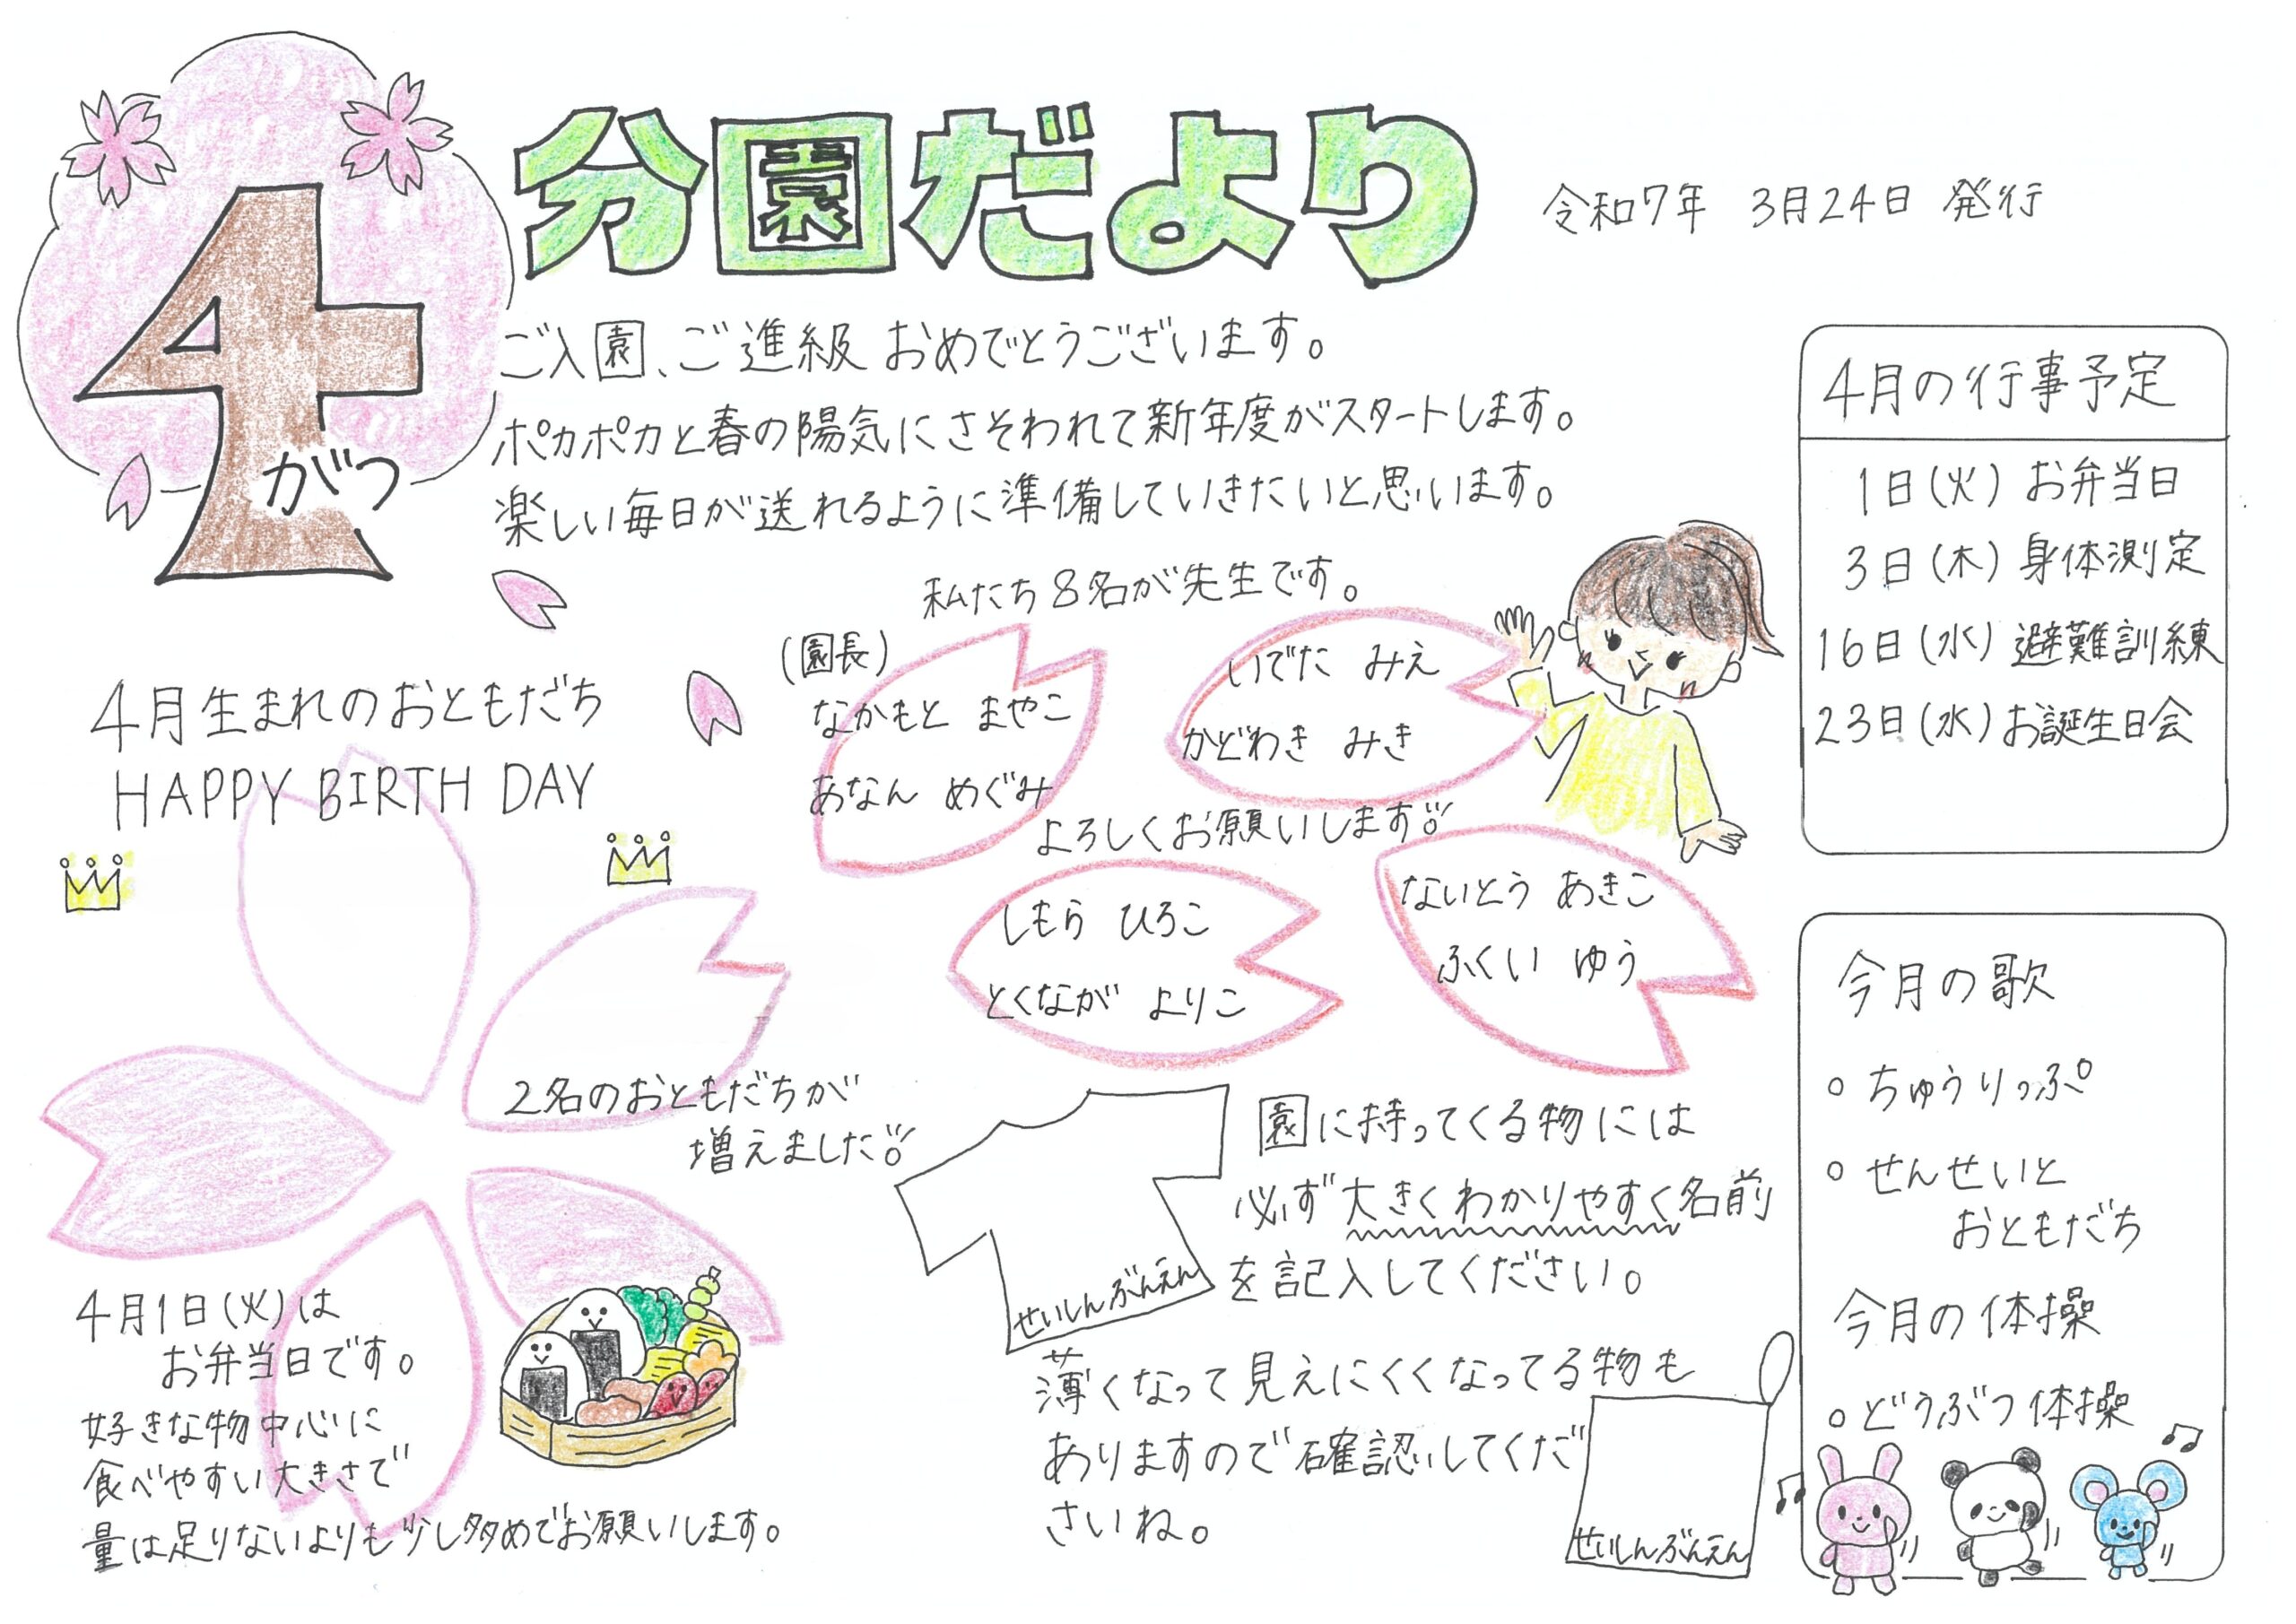 4がつ
分園だより
令和7年 3月24日 発行
ご入園、ご進級 おめでとうございます。
ポカポカと春の陽気にさそわれて新年度がスタートします。
楽しい毎日が送れるように準備していきたいと思います。
私たち8名が先生です。
(園長)
なかもと まやこ
あなん めぐみ
いでた みえ
かどわき みき
よろしくお願いします
しもら ひろこ
とくなが よりこ
ないとう あきこ
ふくい ゆう
4月生まれのおともだち
HAPPY BIRTH DAY
2名のおともだちが
増えました
4月1日(火)は
お弁当日です。
好きな物中心に
食べやすい大きさで
量は足りないよりも少し多めでお願いします。
園に持ってくる物には
必ず大きくわかりやすく名前
を記入してください。
せいしんぶんえん
薄くなって見えにくくなってる物も
ありますので確認してくだ
さいね。
せいしんぶんえん
4月の行事予定
1日(火) お弁当日
3日(木) 身体測定
16日(水) 避難訓練
23日(水) お誕生日会
今月の歌
○ ちゅうりっぷ
○ せんせいと
おともだち
今月の体操
○ どうぶつ体操